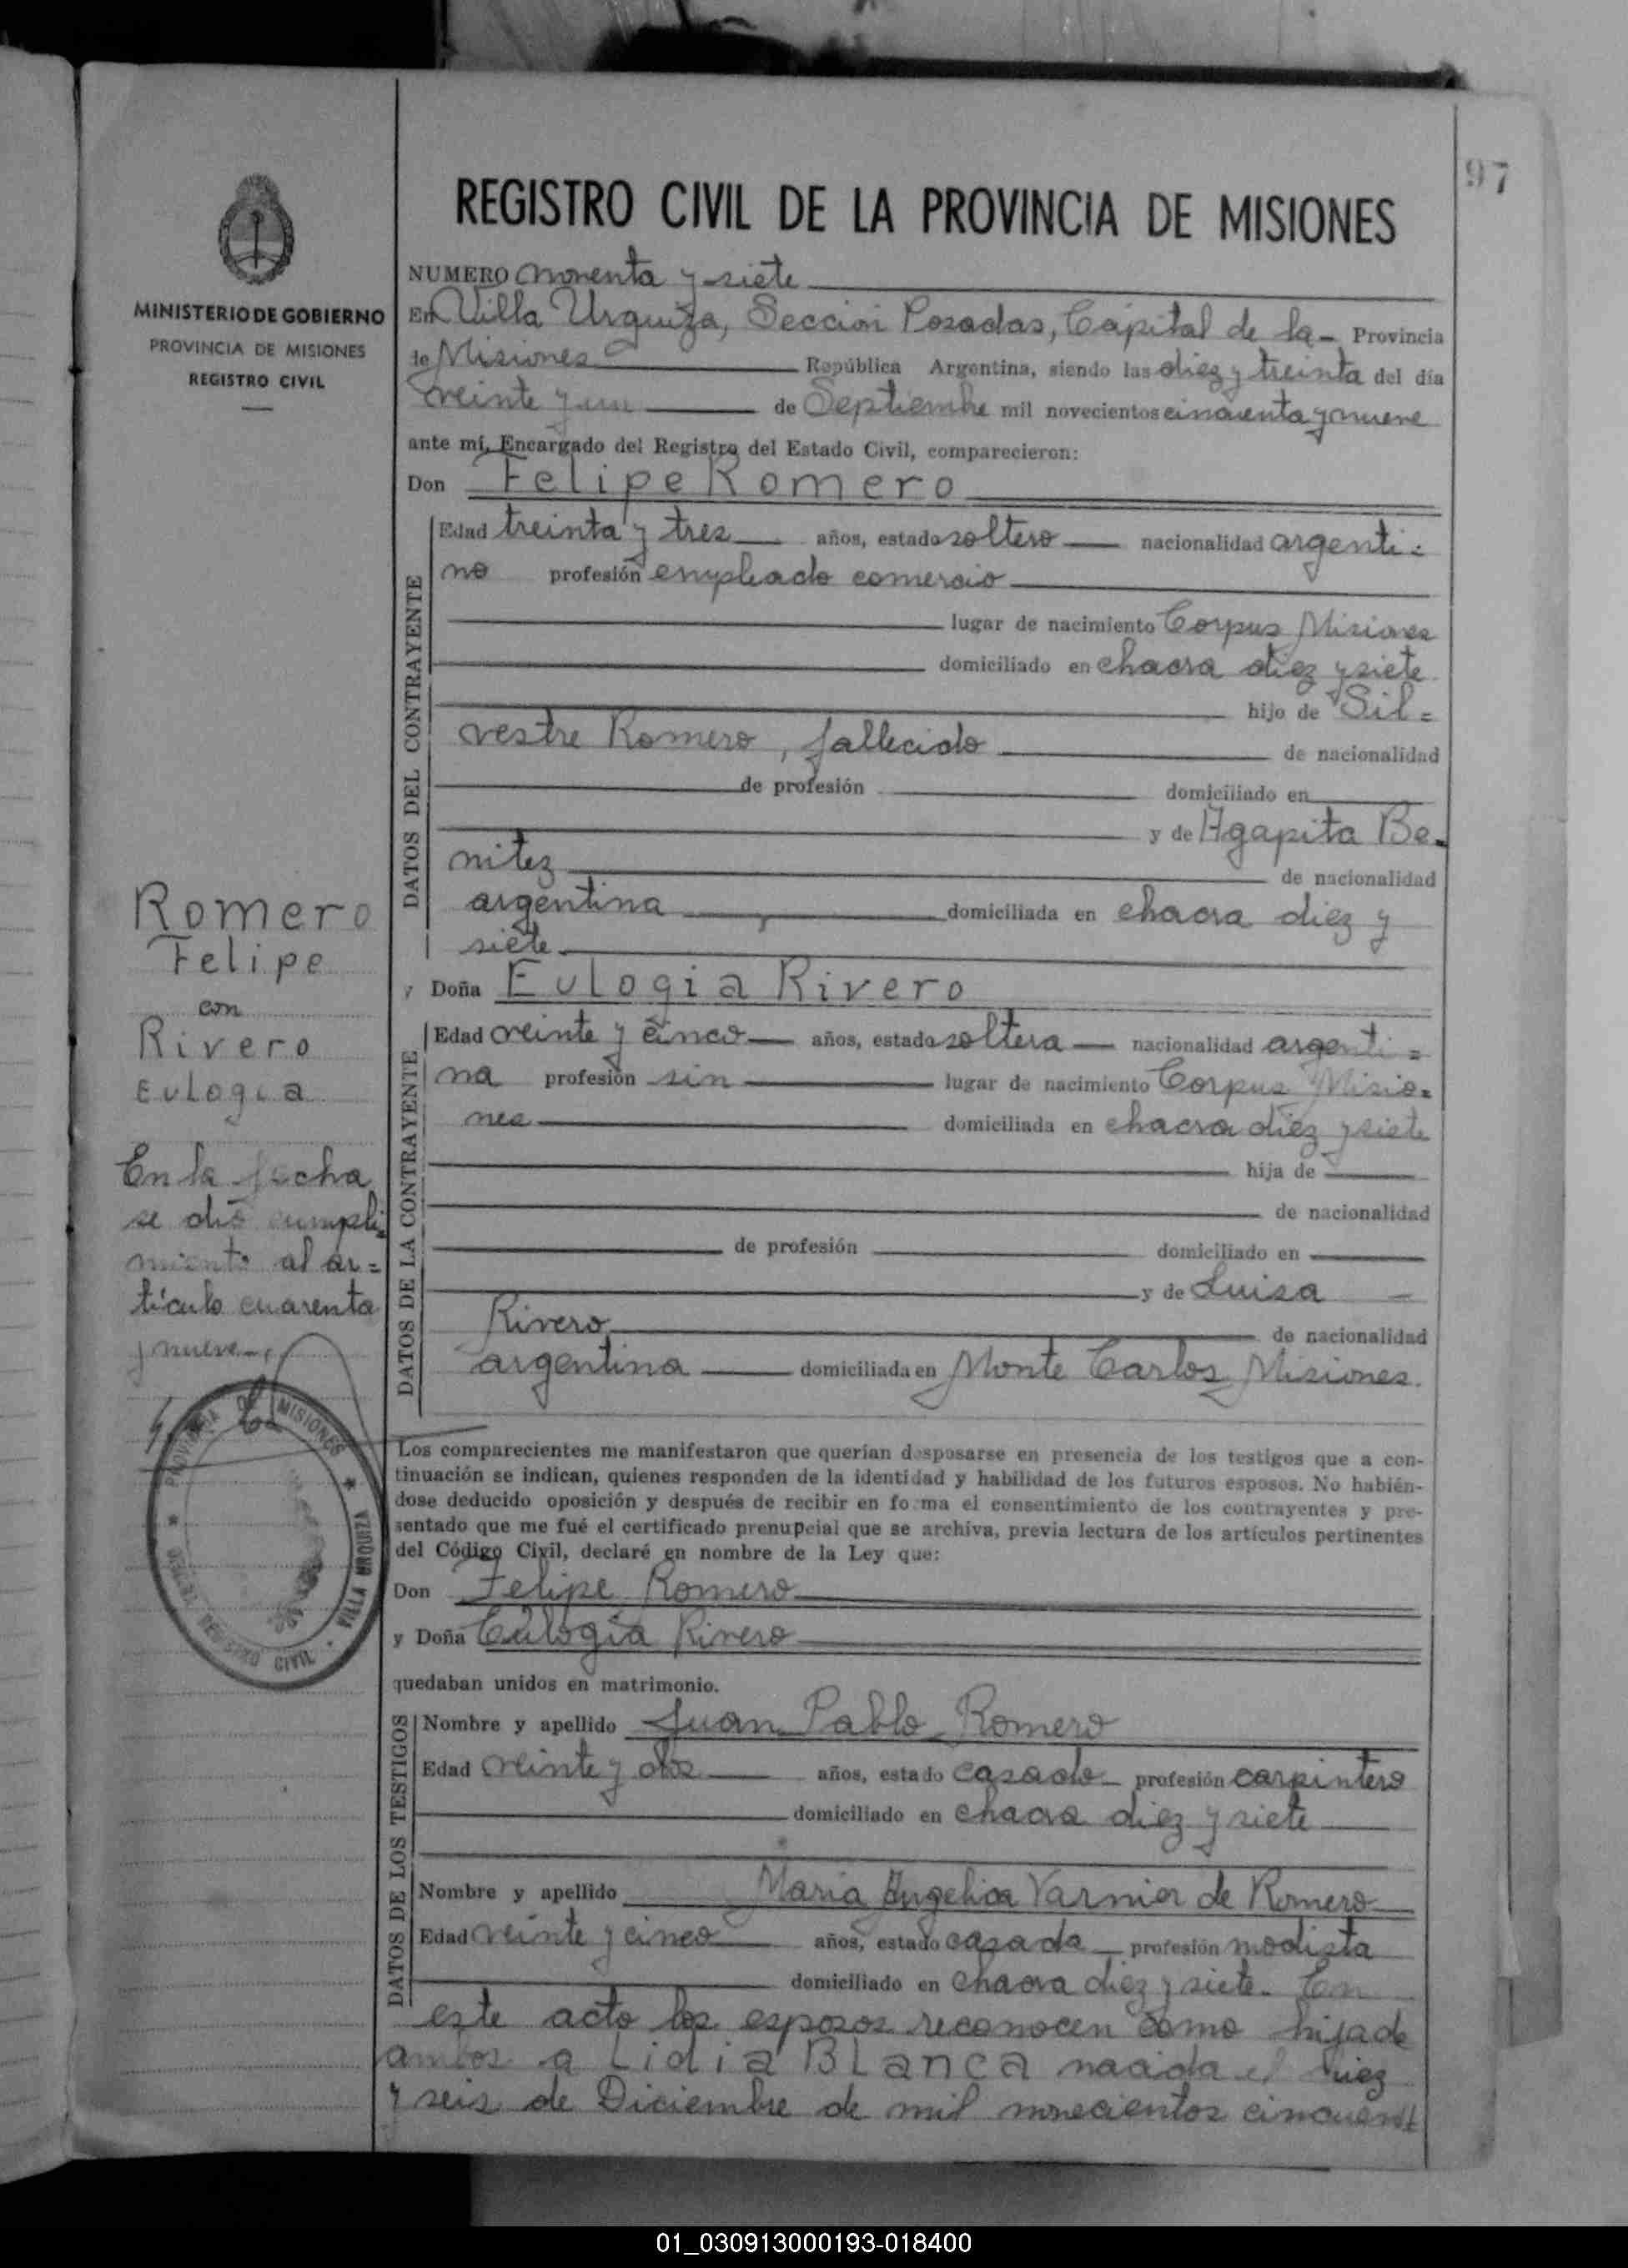 97
MINISTERIO DE GOBIERNO
PROVINCIA DE MISIONES
REGISTRO CIVIL
REGISTRO CIVIL DE LA PROVINCIA DE MISIONES
NUMERO noventa y siete
En Villa Urquiza, Sección Posadas, Capital de la - Provincia
de Misiones República Argentina, siendo las diez y treinta del día
veinte y un de Septiembre mil novecientos cincuenta y nueve
ante mí, Encargado del Registro del Estado Civil, comparecieron:
Don Felipe Romero
DATOS DEL CONTRAYENTE
Edad treinta y tres años, estado soltero nacionalidad argenti=
no profesión empleado comercio
lugar de nacimiento Corpus Misiones
domiciliado en chacra diez y siete
hijo de Sil=
vestre Romero, fallecido de nacionalidad
de profesión domiciliado en
y de Agapita Be-
nitez de nacionalidad
argentina domiciliada en chacra diez y
siete
y Doña Eulogia Rivero
DATOS DE LA CONTRAYENTE
Edad veinte y cinco años, estado soltera nacionalidad argenti=
na profesión sin lugar de nacimiento Corpus Misio=
nes domiciliada en chacra diez y siete
hija de
de nacionalidad
de profesión domiciliado en
y de Luisa
Rivero de nacionalidad
argentina domiciliada en Monte Carlos Misiones.
Romero
Felipe
con
Rivero
Eulogia
En la fecha
se dió cumpli=
miento al ar=
tículo cuarenta
y nueve
PROVINCIA DE MISIONES
VILLA URQUIZA
REGISTRO CIVIL
Los comparecientes me manifestaron que querían desposarse en presencia de los testigos que a con-
tinuación se indican, quienes responden de la identidad y habilidad de los futuros esposos. No habién-
dose deducido oposición y después de recibir en forma el consentimiento de los contrayentes y pre-
sentado que me fué el certificado prenupcial que se archiva, previa lectura de los artículos pertinentes
del Código Civil, declaré en nombre de la Ley que:
Don Felipe Romero
y Doña Eulogia Rivero
quedaban unidos en matrimonio.
DATOS DE LOS TESTIGOS
Nombre y apellido Juan Pablo Romero
Edad veinte y dos años, estado casado profesión carpintero
domiciliado en chacra diez y siete
Nombre y apellido Maria Angelica Varnier de Romero
Edad veinte y cinco años, estado casada profesión modista
domiciliado en chacra diez y siete. En
este acto los esposos reconocen como hija de
ambos a Lidia Blanca nacida el diez
y seis de Diciembre de mil novecientos cincuent
01_030913000193-018400